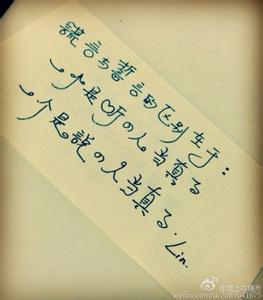 謊言与誓言的区别在于：
一个是听の人当真了
一个是説の人当真了. Lin.